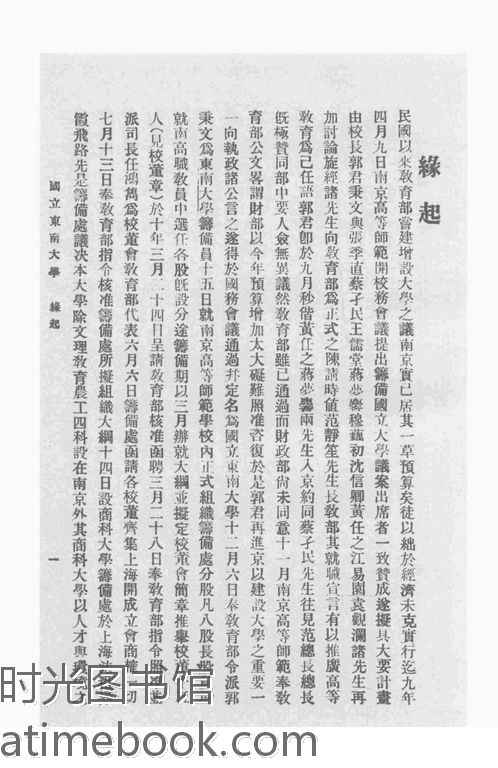 緣起
民國以來教育部嘗建增設大學之議南京實已居其一草預算矣徒以絀於經濟未克實行迄九年
四月九日南京高等師範開校務會議提出籌備國立大學議案出席者一致贊成遂擬具大要計畫
由校長郭君秉文與張季直蔡孑民王儒堂蔣夢麐穆藕初沈信卿黃任之江易園袁觀瀾諸先生再
加討論旋經諸先生向教育部為正式之陳請時值范靜笙先生長教部其就職宣言有以推廣高等
教育為己任語郭君卽於九月秒偕黃任之蔣夢麐兩先生入京約同蔡孑民先生往見范總長總長
旣極贊同部中要人僉無異議然教育部雖已通過而財政部尙未同意十一月南京高等師範奉教
育部公文畧謂財部以今年預算增加太大礙難照准咨復於是郭君再進京以建設大學之重要一
一向執政諸公言之遂得於國務會議通過幷定名為國立東南大學十二月六日奉教育部令派郭
秉文為東南大學籌備員十五日就南京高等師範學校內正式組織籌備處分股凡八股長股員
就南高職教員中選任各股旣設分途籌備期以三月辦就大綱並擬定校董會簡章推舉校董
人(見校董章)於十年三月二十四日呈請教育部核准函聘三月二十八日奉教育部指令照准
派司長任鴻雋為校董會教育部代表六月六日籌備處函請各校董齊集上海開成立會商榷一切
七月十三日奉教育部指令核准籌備處所擬組織大綱十四日設商科大學籌備處於上海法
霞飛路先是籌備處議決本大學除文理教育農工四科設在南京外其商科大學以人才與環
國立東南大學 緣起
一
时光图书馆
atimebook.com